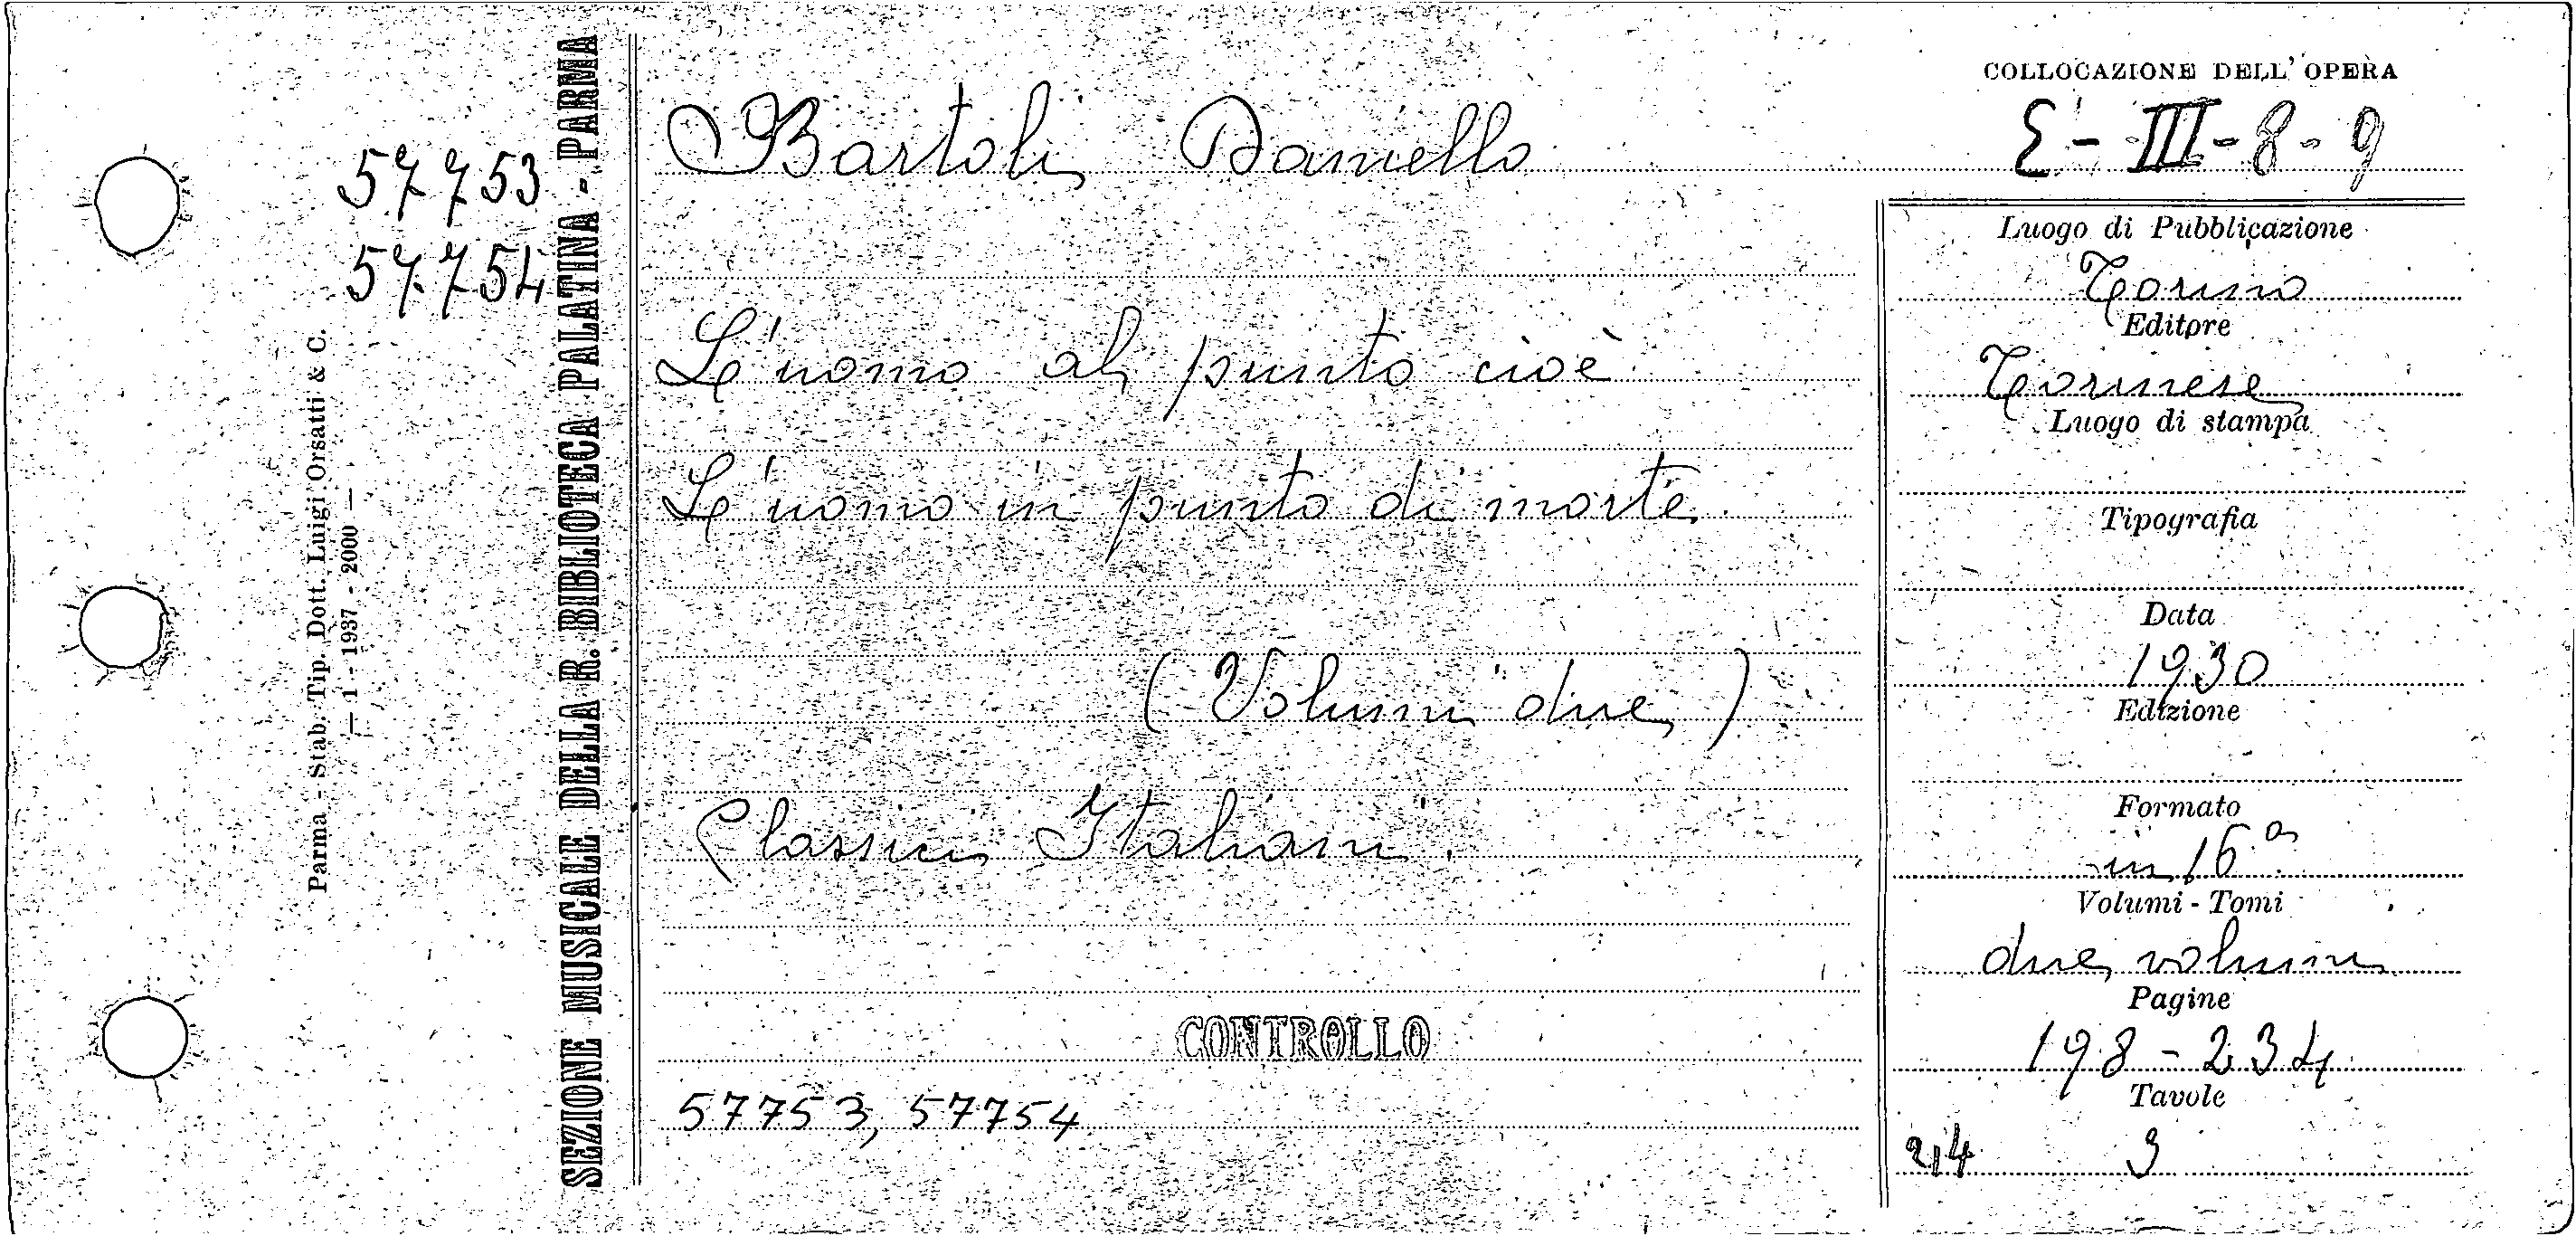 COLLOCAZIONE DELL' OPERA
Bartoli Daniello
E - III - 8 - 9
57753
57754
L'uomo al punto cioè
L'uomo in punto di morte
(Volumi due)
Classici Italiani.
CONTROLLO
57753, 57754
Luogo di Pubblicazione
Torino
Editore
Torinese
Luogo di stampa
Tipografia
Data
1930
Edizione
Formato
in 16º
Volumi - Tomi
due volumi
Pagine
198 - 234
Tavole
2,4 3
SEZIONE MUSICALE DELLA R. BIBLIOTECA PALATINA - PARMA
Parma - Stab. Tip. Dott. Luigi Orsatti & C.
— 1 - 1937 - 2000 —